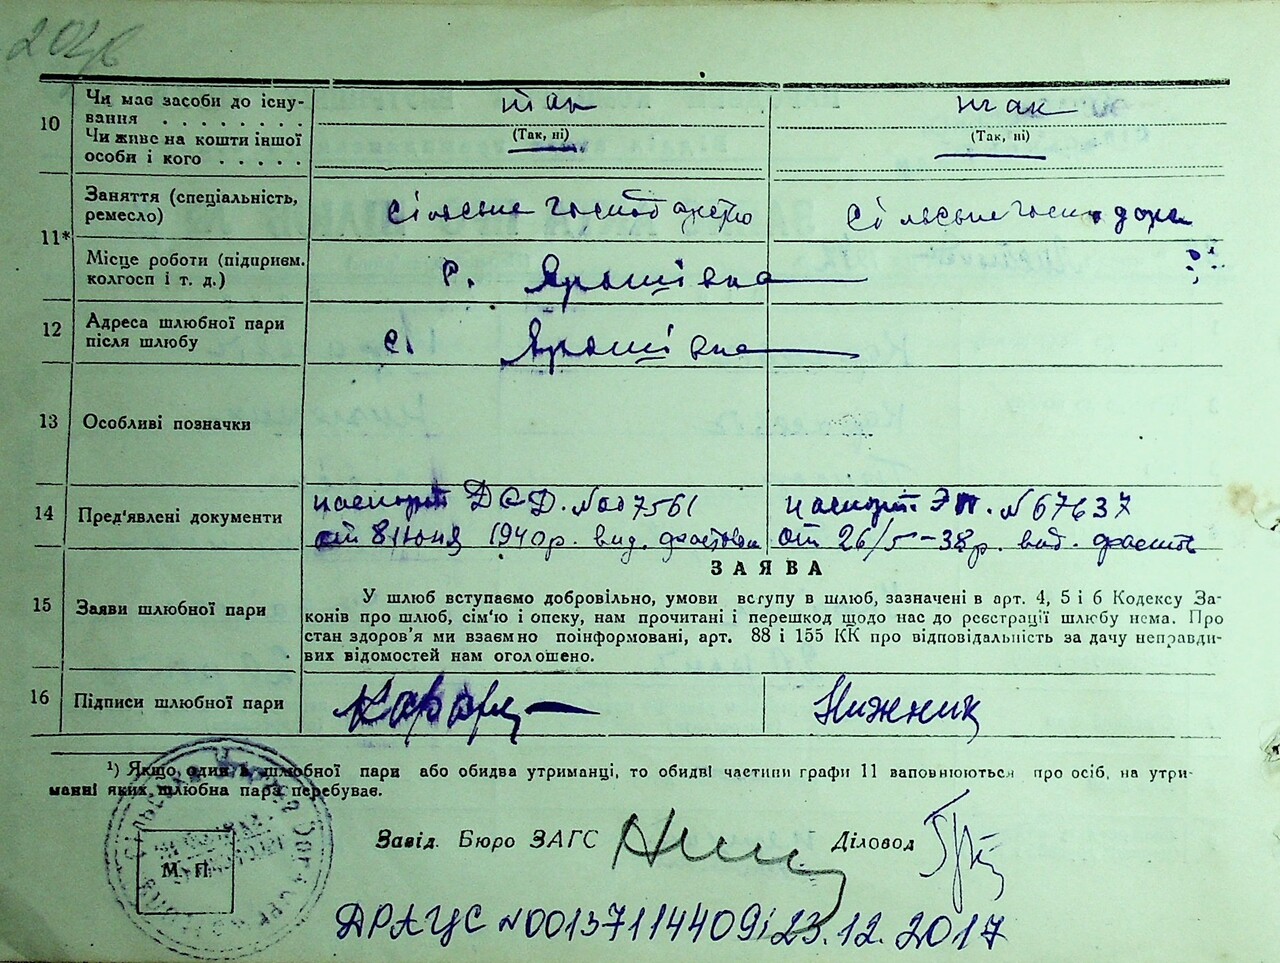 204б
10 Чи має засоби до існу- так так
вання . . . . . . . .
Чи живе на кошти іншої (Так, ні) (Так, ні)
особи і кого . . . . .
11* Заняття (спеціальність, сільське господарство сільське господарс
ремесло)
Місце роботи (підприєм. с. Ярошівка
колгосп і т. д.)
12 Адреса шлюбної пари с. Ярошівка
після шлюбу
13 Особливі позначки
14 Пред'явлені документи паспорт ДСД. №007561 паспорт ЭП. №67637
от 8 июня 1940р. вид. фастовом от 26/5-38р. вид. фастів
ЗАЯВА
15 Заяви шлюбної пари
У шлюб вступаємо добровільно, умови вступу в шлюб, зазначені в арт. 4, 5 і 6 Кодексу За-
конів про шлюб, сім'ю і опеку, нам прочитані і перешкод щодо нас до реєстрації шлюбу нема. Про
стан здоров'я ми взаємно поінформовані, арт. 88 і 155 КК про відповідальність за дачу неправди-
вих відомостей нам оголошено.
16 Підписи шлюбної пари Нижник
¹) Якщо один із шлюбної пари або обидва утриманці, то обидві частини графи 11 заповнюються про осіб, на утри-
манні яких шлюбна пара перебуває.
Завід. Бюро ЗАГС Діловод
М. П.
ДРАЦС №00137114409 і 23.12.2017